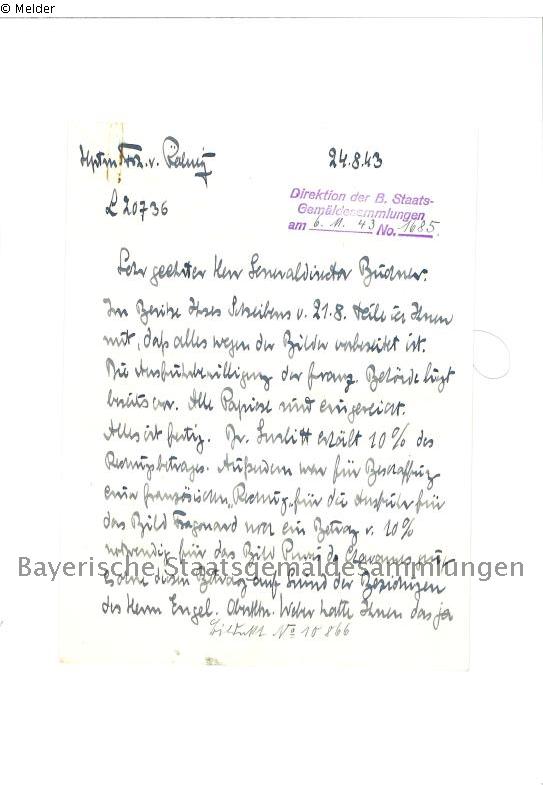 © Melder
Hptm Frh. v. Pölnitz 24.8.43
L 20736
Direktion der B. Staats-
Gemäldesammlungen
am 6. 11. 43 No. 1685.
Sehr geehrter Herr Generaldirector Buchner.
Im Besitze Ihres Schreibens v. 21.8. teile ich Ihnen
mit, daß alles wegen der Bilder vorbereitet ist.
Die Ausfuhrbewilligung der franz. Behörde liegt
bereits vor. Alle Papiere sind eingereicht.
Alles ist fertig. Dr. Gurlitt erhält 10% des
Rechnungsbetrages. Außerdem war für Beschaffung
einer französischen „Rechnung" für die Ausfuhr für
das Bild Fragonard noch ein Betrag v. 10%
notwendig, für das Bild Puvis de Chavannes
Bayerische Staatsgemäldesammlungen
ohne diesen Betrag auf Grund der Beziehungen
des Herrn Engel. Oberstltn. Weber hatte Ihnen das ja
Bildakt No 10 866